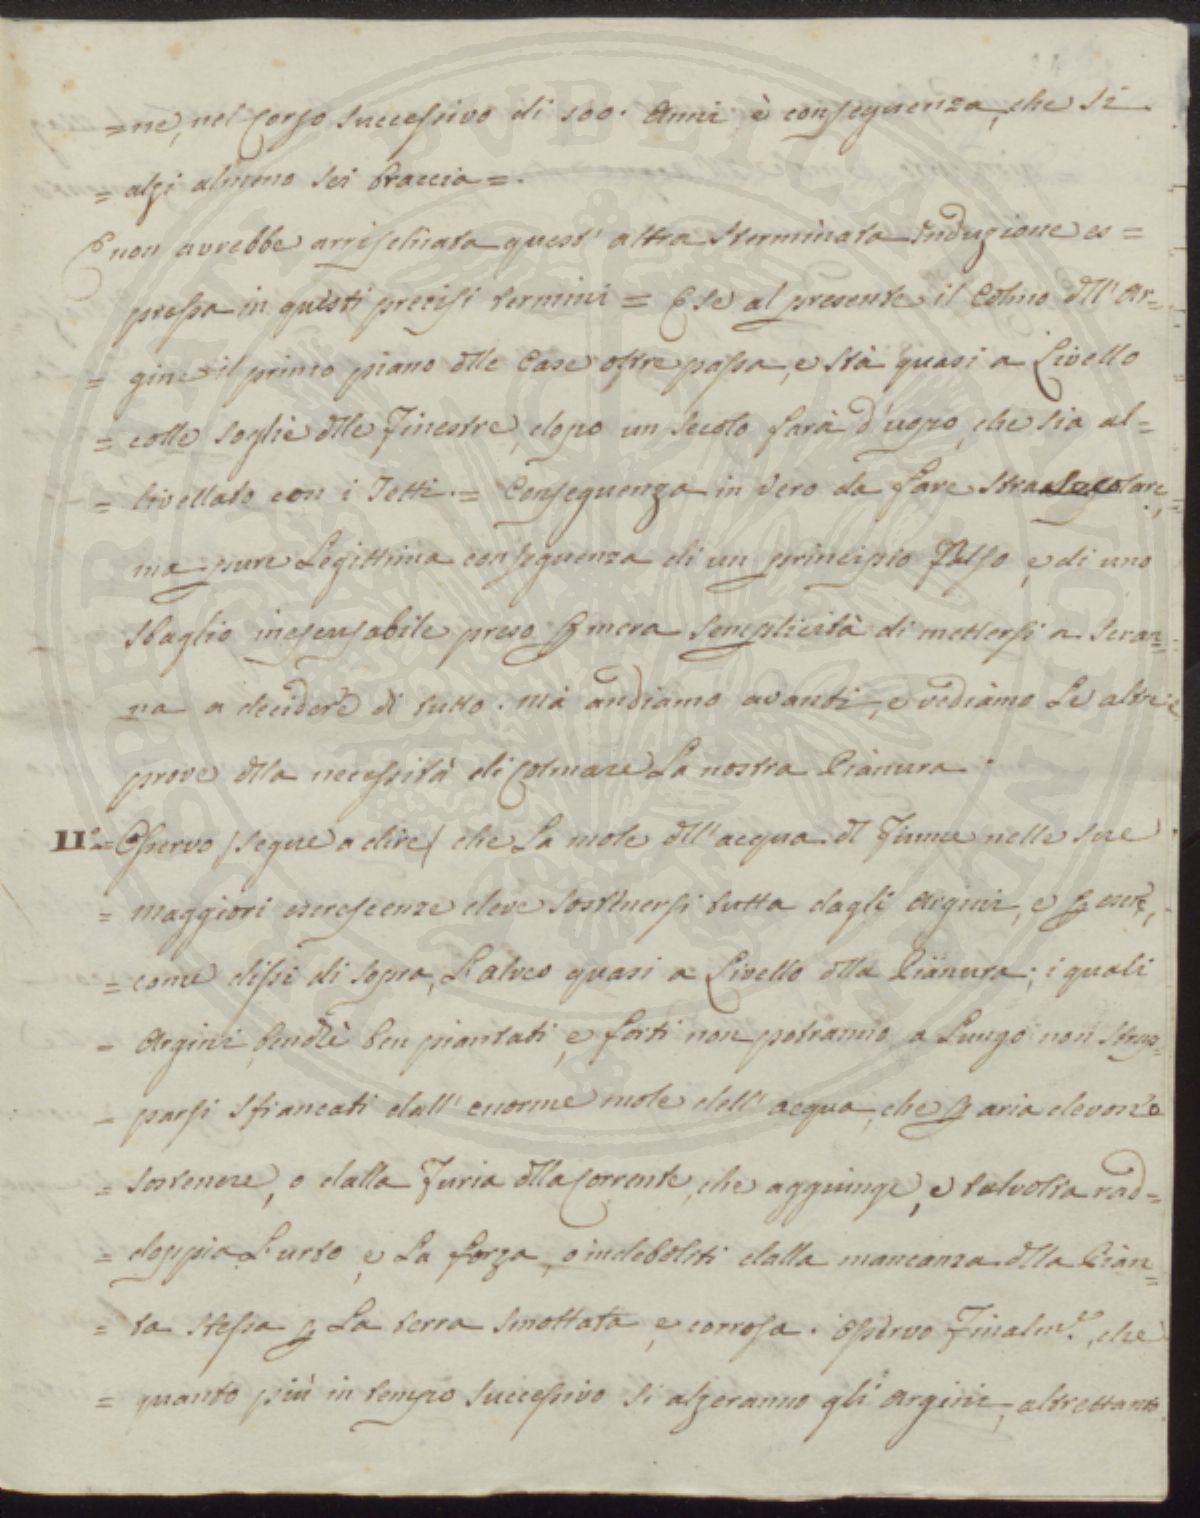 =ne, nel Corso successivo di 100. Anni è conseguenza, che si
= alzi almeno sei Braccia =.
E non avrebbe arrischiata quest' altra sterminata Induzione es=
pressa in questi precisi termini = E se al presente il Colmo dll' Ar-
= gine il primo piano dlle Case oltrepassa, e stà quasi a Livello
= colle soglie dlle Finestre, dopo un secolo sarà d'uopo, che sia al=
= livellato con i Tetti. = Conseguenza in vero da fare strasecolare,
ma pure Legittima conseguenza di un principio Falso, e di uno
sbaglio inescusabile preso p mera semplicità di mettersi a Scran=
na a decidere di tutto. Mà andiamo avanti, e vediamo Le altre
prove dlla necessità di Colmare La nostra Pianura.
11.° = Osservo (segue a dire) che La mole dll' acqua dl Fiume nelle sue
= maggiori escrescenze deve sostenersi tutta dagli Argini, e p essere,
= come dissi di sopra, L'alveo quasi a Livello dlla Pianura; i quali
= Argini, benchè ben piantati, e forti non potranno a Lungo non strap=
= parsi sfiancati dall' enorme mole dell' acqua, che p aria devono
= sostenere, o dalla Furia dlla Corrente, che aggiunge, e talvolta rad=
= doppia L'urto, e La forza, o indeboliti dalla mancanza dlla Pian=
= ta stessa p La terra smottata, e corrosa. Osservo Finalm.te, che
= quanto più in tempo successivo si alzeranno gli Argini, altrettanto